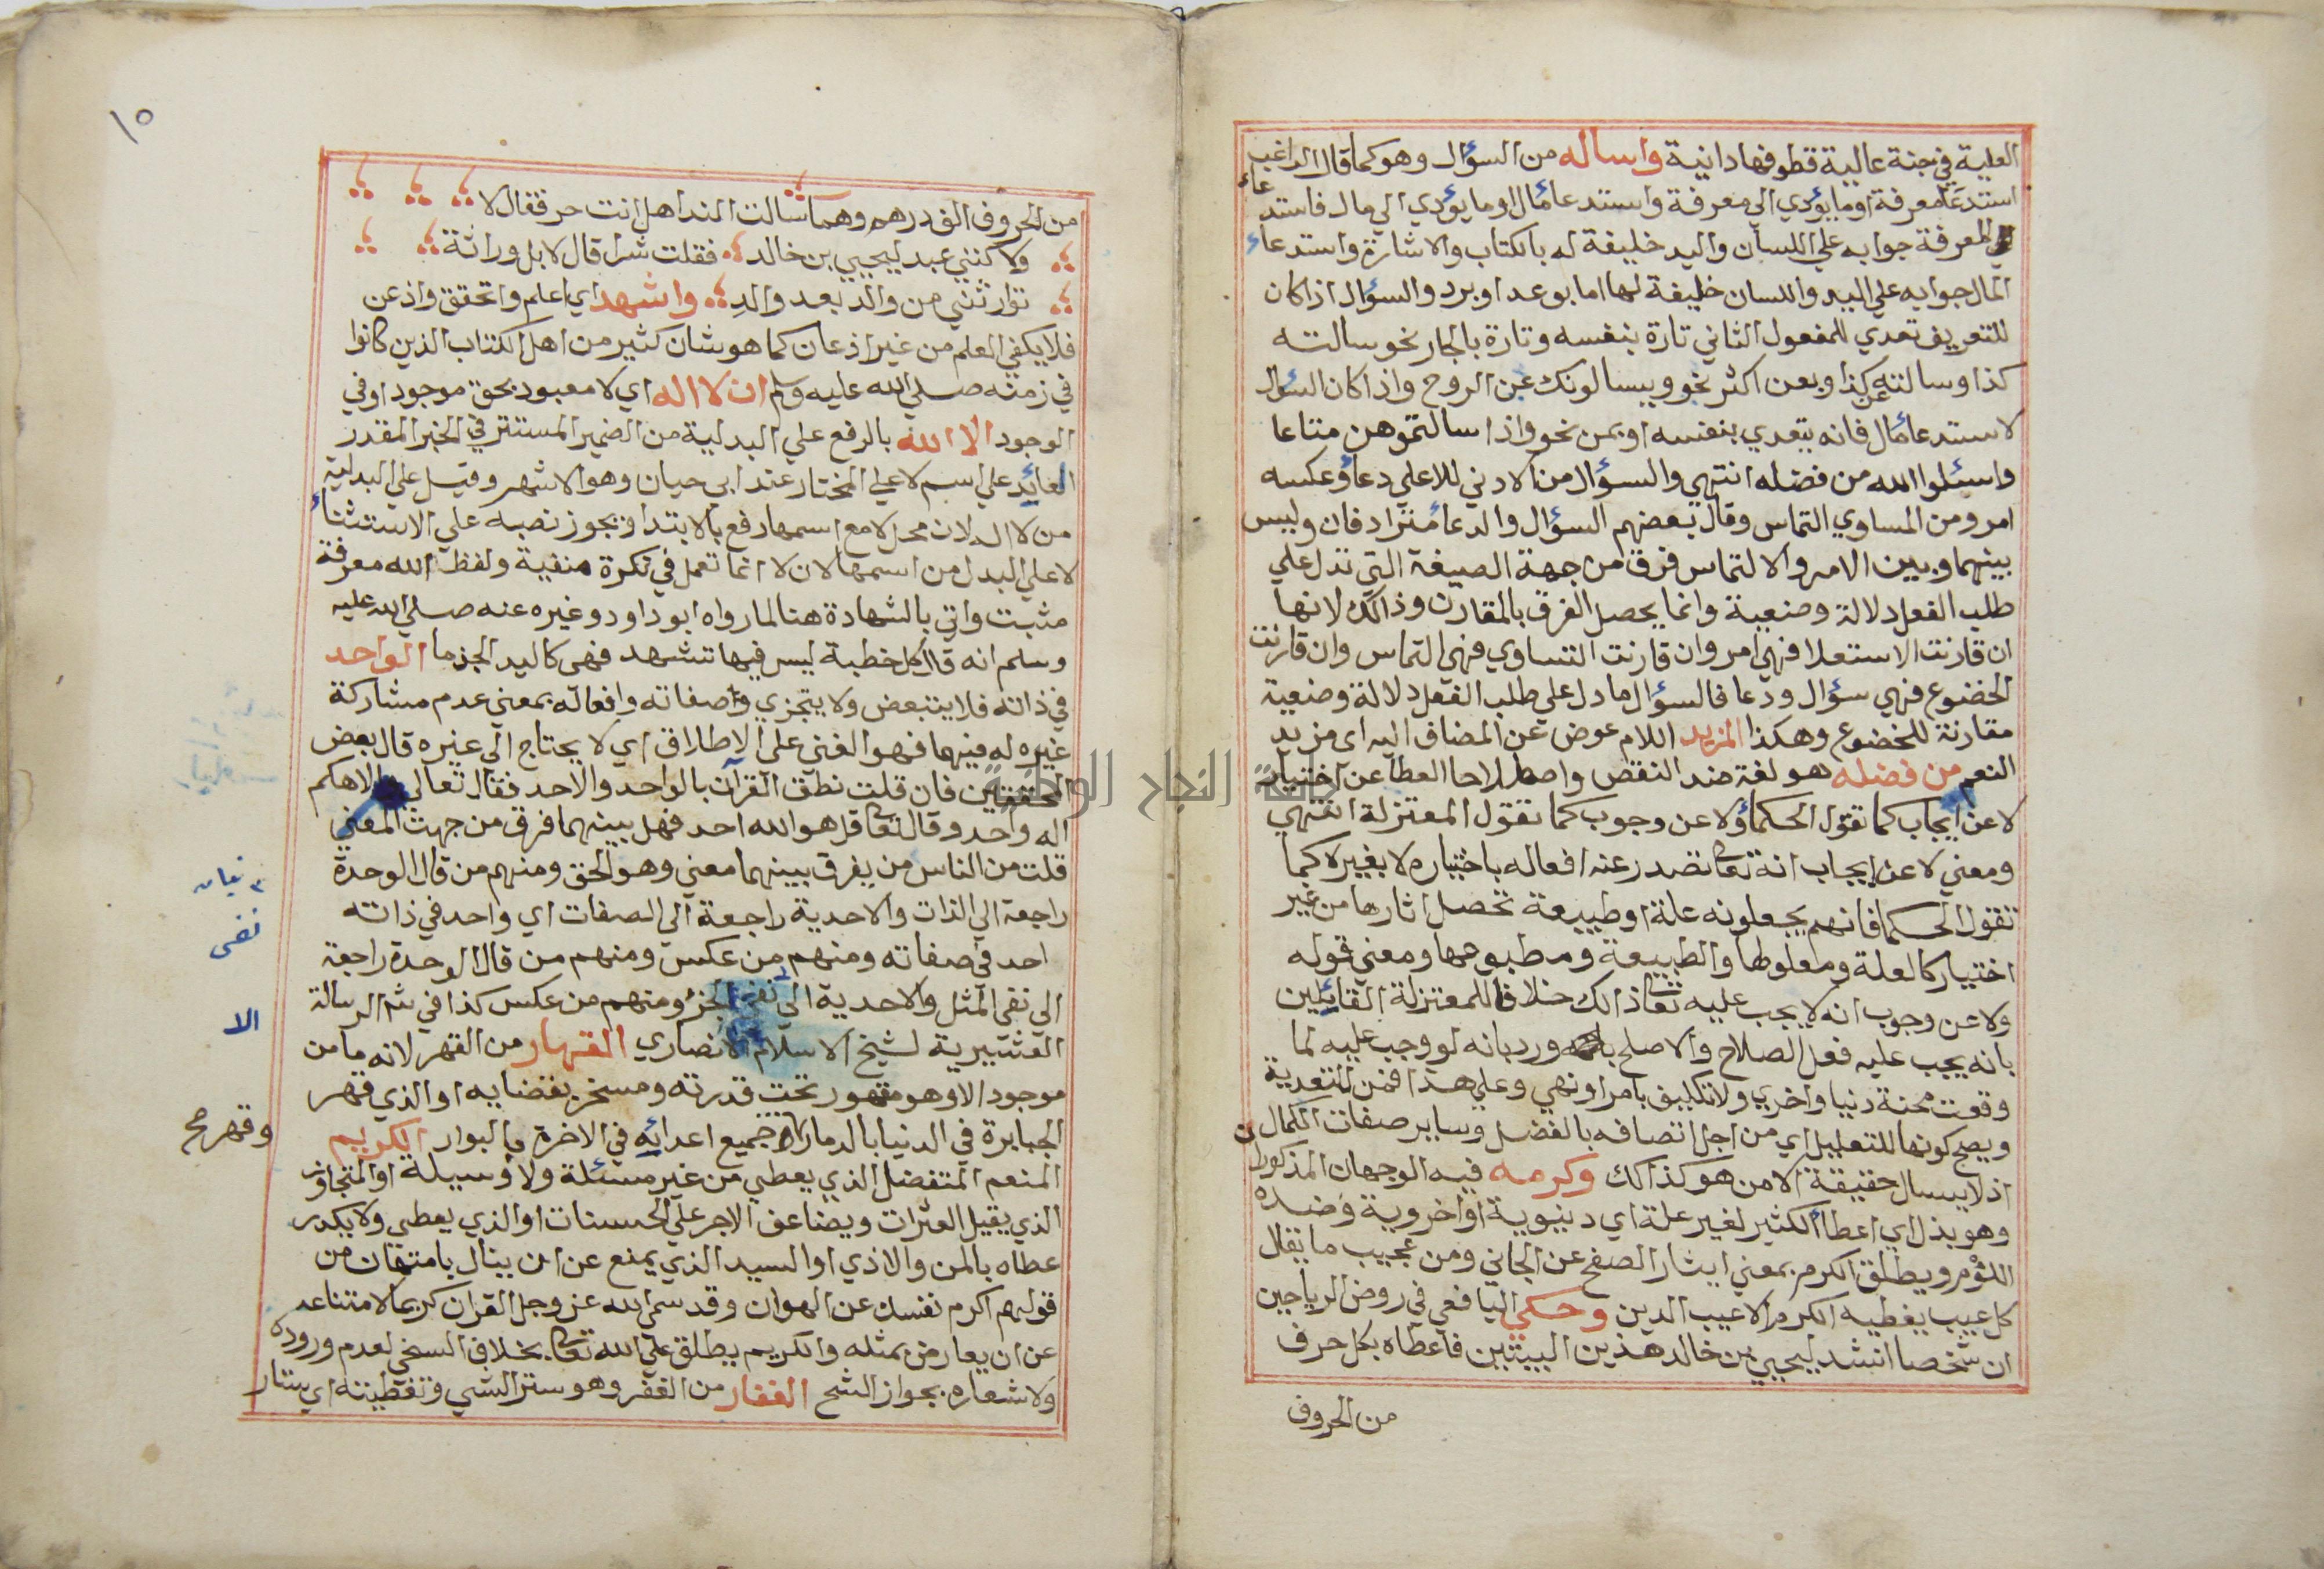 العلية في جنة عالية قطوفها دانية واساله من السؤال وهو كما قال الراغب
استدعا معرفة او ما يؤدي الي معرفة واستدعا مال او ما يؤدي الي مال فاستدعاء
المعرفة جوابه علي اللسان واليد خليفة له بالكتاب والاشارة واستدعاء
المال جوابه علي اليد واللسان خليفة لها اما بوعد او برد والسؤال اذا كان
للتعريف تعدي للمفعول الثاني تارة بنفسه وتارة بالجار نحو سالته
كذا وسالته عن كذا وبعن اكثر نحو ويسالونك عن الروح واذا كان السؤال
لاستدعا مال فانه يتعدي بنفسه او بمن نحو واذا سالتموهن متاعا
واسئلوا الله من فضله انتهي والسؤال من الادني للاعلي دعاؤ وعكسه
امر ومن المساوي التماس وقال بعضهم السؤال والدعا مترادفان وليس
بينهما وبين الامر والالتماس فرق من جهة الصيغة التي تدل علي
طلب الفعل دلالة وضعية وانما يحصل الفرق بالمقارن وذالك لانها
ان قارنت الاستعلا فهي امر وان قارنت التساوي فهي التماس وان قارنت
الخضوع فهي سؤال ودعا فالسؤال ما دل علي طلب الفعل دلالة وضعية
مقارنة للخضوع وهكذا المزيد اللام عوض عن المضاف اليه اي مزيد
النعم من فضله هو لغة ضد النقص واصطلاحا العطا عن اختيار
لا عن ايجاب كما تقول الحكماؤ ولا عن وجوب كما تقول المعتزلة انتهي
ومعني لا عن ايجاب انه تعا تصدر عنه افعاله باختياره لا بغيره كما
تقول الحكما فانهم يجعلونه علة او طبيعة تحصل اثارها من غير
اختيار كالعلة ومعلولها والطبيعة ومطبوعها ومعني قوله
ولا عن وجوب انه لا يجب عليه تعا ذالك خلافا للمعتزلة القائلين
بانه يجب عليه فعل الصلاح والاصلح ورد بانه لو وجب عليه لما
وقعت محنة دنيا واخري ولا تكليف بامر او نهي وعلي هذا فمن للتعدية
ويصح كونها للتعليل اي من اجل اتصافه بالفضل وساير صفات الكمال
اذ لا يسال حقيقة الا من هو كذالك وكرمه فيه الوجهان المذكوران
وهو بذل اي اعطا الكثير لغير علة اي دنيوية او اخروية وضده
اللؤم ويطلق الكرم بمعني ايثار الصفح عن الجاني ومن عجيب ما يقال
كل عيب يغطيه الكرم الا عيب الدين وحكي اليافعي في روض الرياحين
ان شخصا انشد ليحيي بن خالد هذين البيتين فاعطاه بكل حرف
من الحروف
١٥
من الحروف الف درهم وهما سالت الندا هل انت حر فقال لا
ولاكنني عبد ليحيي بن خالد فقلت شرا قال لا بل وراثة
توارثني من والد بعد والد واشهد اي اعلم واتحقق واذعن
فلا يكفي العلم من غير اذعان كما هو شان كثير من اهل الكتاب الذين كانوا
في زمنه صلي الله عليه وسلم ان لا اله اي لا معبود بحق موجود او في
الوجود الا الله بالرفع علي البدلية من الضمير المستتر في الخبر المقدر
العائد علي اسم لا علي المختار عند ابي حيان وهو الاشهر وقيل علي البدلية
من لا اله لان محل لا مع اسمها رفع بالابتدا ويجوز نصبه علي الاستثناء
لا علي البدل من اسمها لان لا انما تعمل في نكرة منفية ولفظ الله معرفة
مثبت واتي بالشهادة هنا لما رواه ابو داود وغيره عنه صلي الله عليه
وسلم انه قال كل خطبة ليس فيها تشهد فهي كاليد الجذما الواحد
في ذاته فلا يتبعض ولا يتجزي وصفاته وافعاله بمعني عدم مشاركة
غيره له فيها فهو الغني علي الاطلاق اي لا يحتاج الي غيره قال بعض
المحققين فان قلت نطق القرآن بالواحد والاحد فقال تعالي والاهكم
اله واحد وقال تعا قل هو الله احد فهل بينهما فرق من جهت المعني
قلت من الناس من يفرق بينهما معني وهو الحق ومنهم من قال الوحدة
راجعة الي الذات والاحدية راجعة الي الصفات اي واحد في ذاته
احد في صفاته ومنهم من عكس ومنهم من قال الوحدة راجعة
الي نفي المثل والاحدية الي نفي الجزؤ ومنهم من عكس كذا في شر الرسالة
القشيرية لشيخ الاسلام الانصاري القهار من القهر لانه ما من
موجود الا وهو مقهور تحت قدرته ومسخر بقضايه او الذي قهر
الجبابرة في الدنيا بالدمار جميع اعدائه في الاخرة بالبوار الكريم
المنعم المتفضل الذي يعطي من غير مسئلة ولا وسيلة او المتجاوز
الذي يقيل العثرات ويضاعف الاجر علي الحسنات او الذي يعطي ولا يكدر
عطاه بالمن والاذي او السيد الذي يمنع عن ان ينال بامتهان من
قولهم اكرم نفسك عن الهوان وقد سمي الله عز وجل القران كريما لامتناعه
عن ان يعارض بمثله والكريم يطلق علي الله تعا بخلاف السخي لعدم وروده
ولاشعاره بجواز الشح الغفار من الغفر وهو ستر الشي وتغطيته اي ستار
نفى
الا
وقهر صح
جامعة النجاح الوطنية